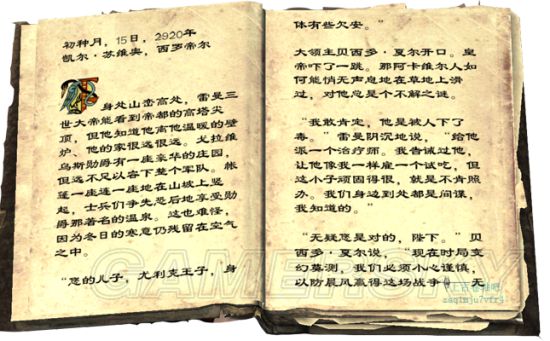 初种月，15日，2920年
凯尔·苏维奥，西罗帝尔
身处山峦高处，雷曼三
世大帝能看到帝都的高塔尖
顶，但他知道他离他温暖的壁
炉、他的家很远很远。戈拉维
乌斯勋爵有一座豪华的庄园，
但远不足以容下整个军队。帐
篷一座连一座地在山坡上竖
起，士兵们争先恐后地享受勋
爵那著名的温泉。这也难怪，
因为冬日的寒意仍残留在空气
之中。
“您的儿子，尤利克王子，身
体有些欠安。”
大领主贝西多·夏尔开口。皇
帝吓了一跳。那阿卡维尔人如
何能悄无声息地在草地上滑
过，对他总是个不解之谜。
“我敢肯定，他是被人下了
毒。”雷曼阴沉地说，“给他
派一个治疗师。我告诫过他，
让他像我一样雇一个试吃，但
这小子顽固得很，就是不肯照
办。我们身边到处都是间谍，
我知道的。”
“无疑您是对的，陛下。”贝
西多·夏尔说，“现在时局变
幻莫测，我们必须小心谨慎，
以防晨风赢得这场战争 无
GAMERSKY